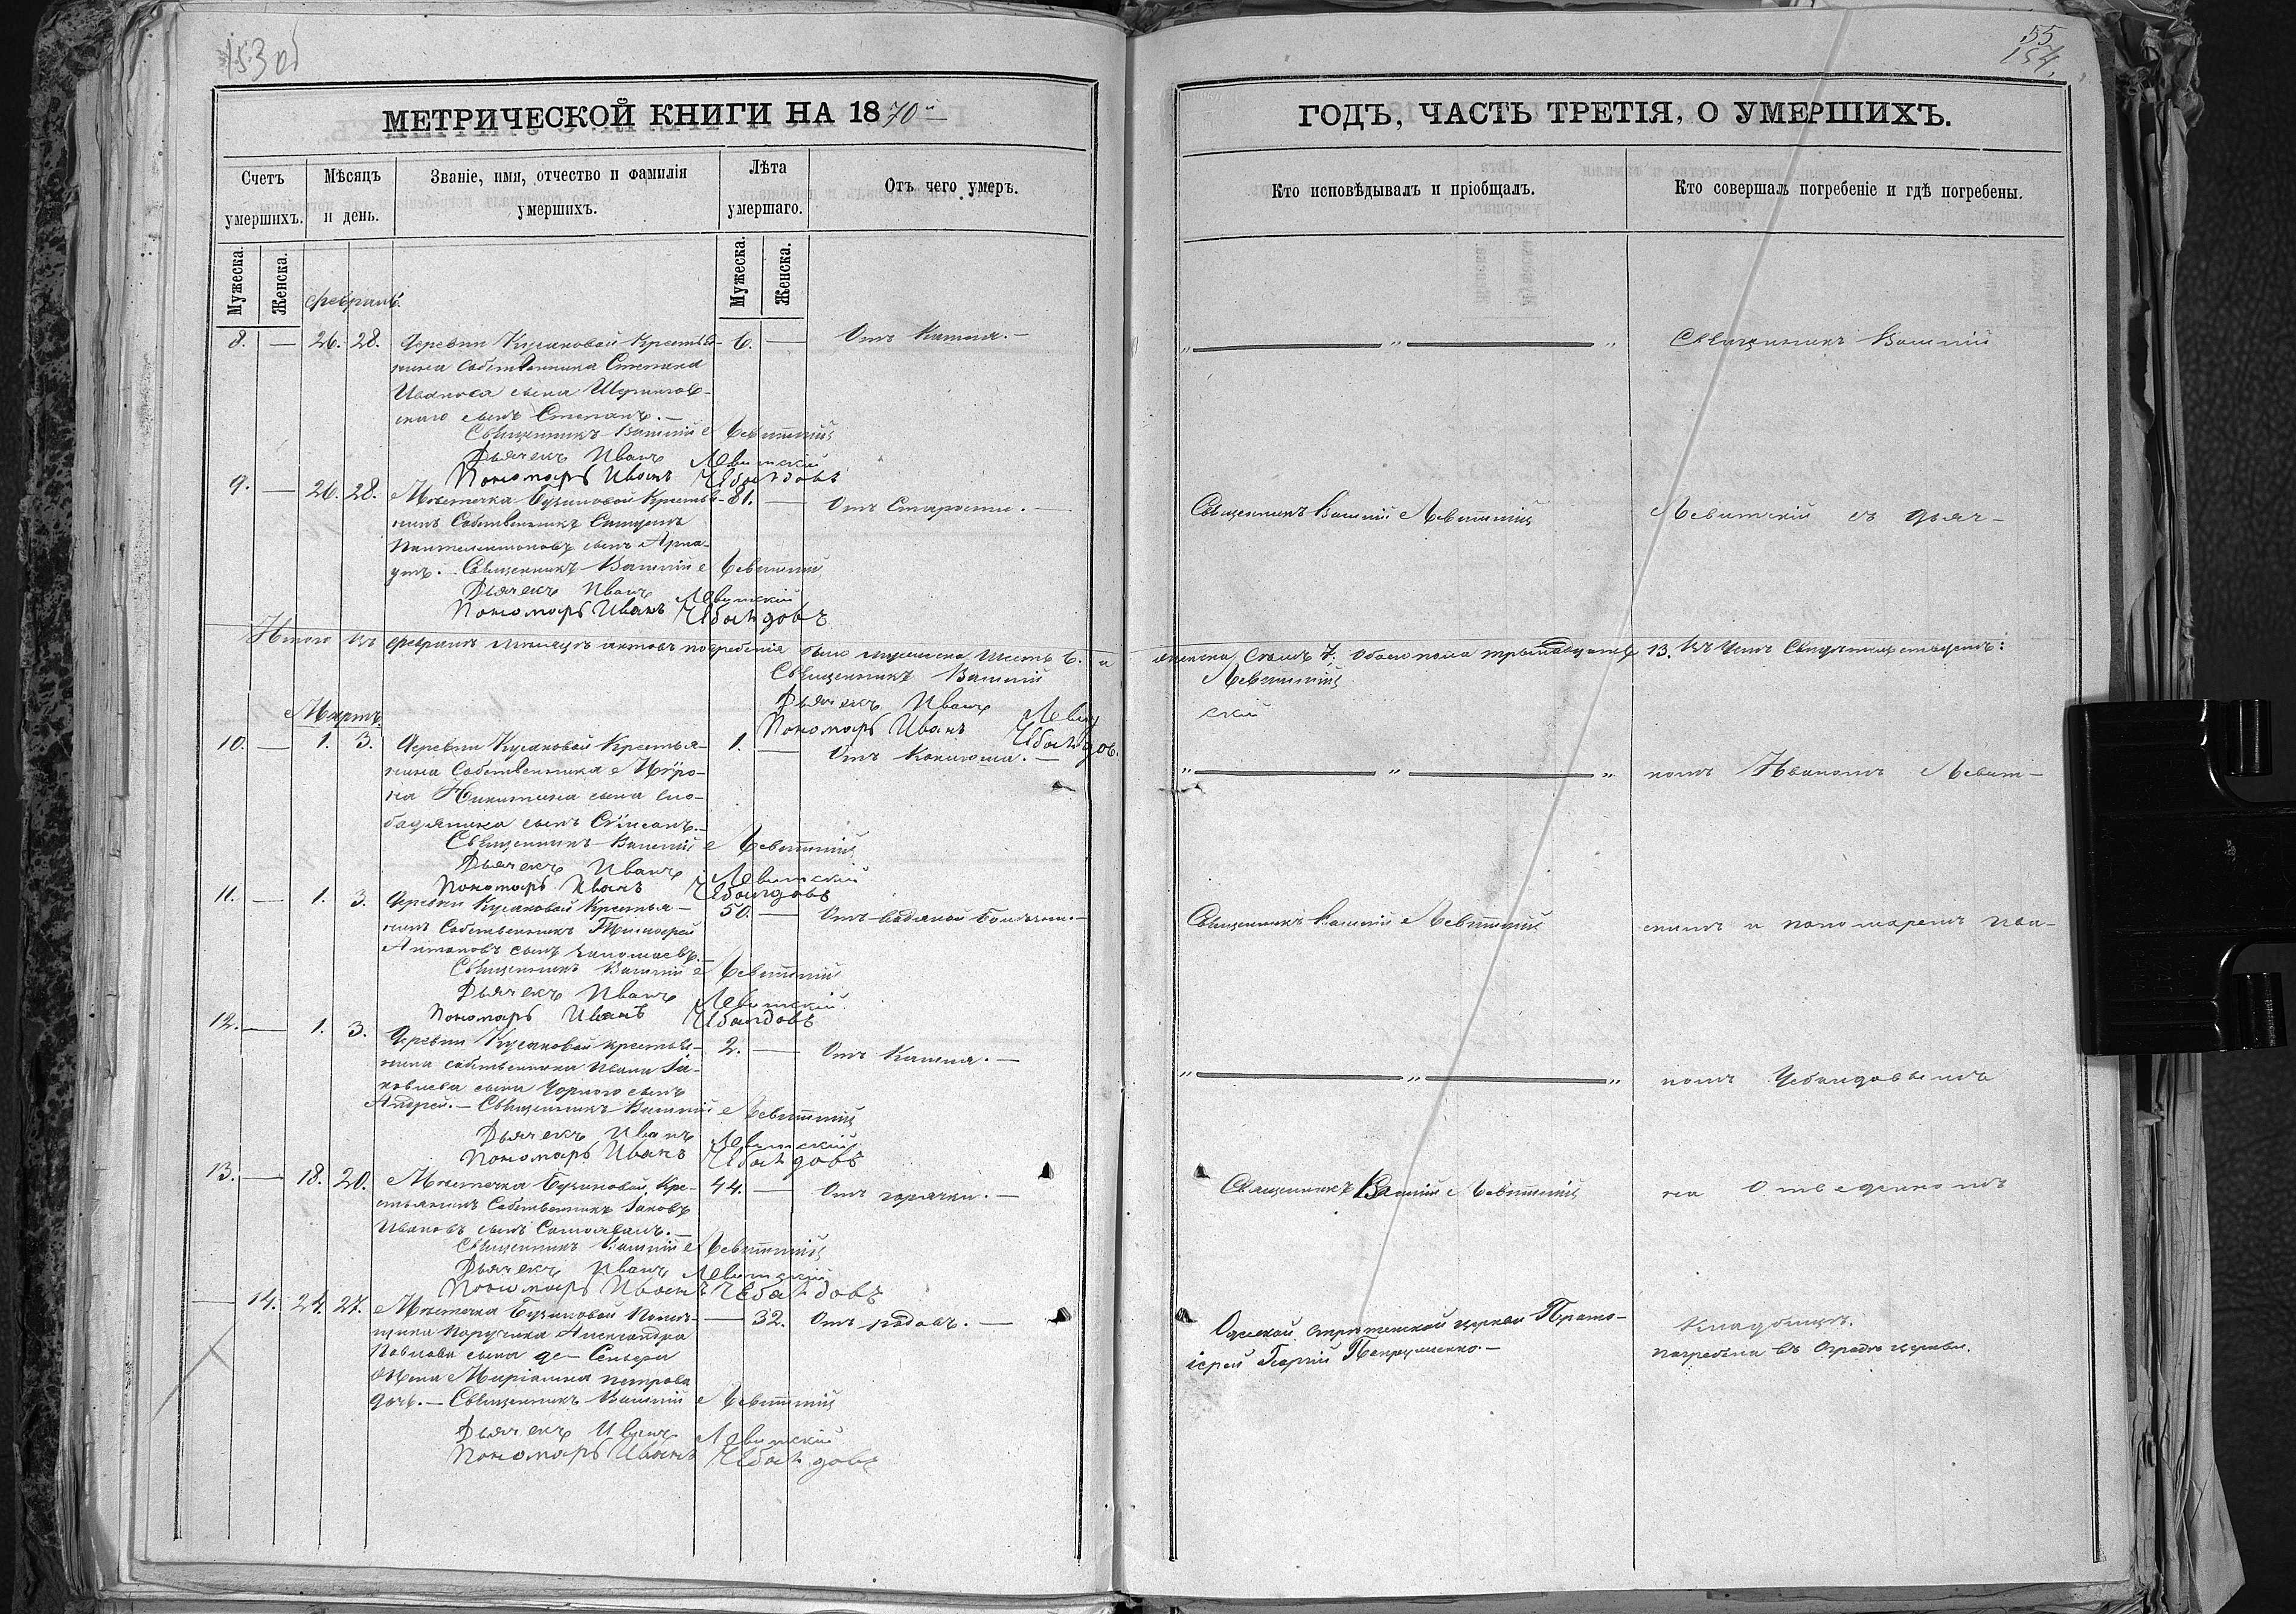 153 об
МЕТРИЧЕСКОЙ КНИГИ НА 1870й
Счетъ умершихъ.
Мѣсяцъ и день.
Званіе, имя, отчество и фамилія умершихъ.
Лѣта умершаго.
Отъ чего умеръ.
Мужеска.
Женска.
Мужеска.
Женска.
февраль.
8. — 26. 28.
Деревни Кусаковой Крестья-
нина Собственника Степана
Иванова сына
сынъ Степанъ. —
6. —
Отъ Кашля. —
Священникъ Василій Левитскій
Дьячекъ Иванъ Левитскій
Пономарь Иванъ Чебандовъ
9. — 26. 28.
Мѣстечка Бузиновой Крестья-
нинъ Собственникъ
Пантелеимоновъ сынъ
81. —
Отъ Старости. —
Священникъ Василій Левитскій
Дьячекъ Иванъ Левитскій
Пономарь Иванъ Чебандовъ
Итого въ февралѣ мѣсяцѣ актовъ погребенія было мужеска шесть 6. и
Священникъ Василій
Дьячекъ Иванъ Левит
Пономарь Иванъ Чебандов.
Мартъ.
10. — 1. 3.
Деревни Кусаковой Крестья-
нина Собственника Мѵро-
на Никитина сына Сло-
бодяника сынъ
1. —
Отъ Коклюша. —
Священникъ Василій Левитскій
Дьячекъ Иванъ Левитскій
Пономарь Иванъ Чебандовъ
11. — 1. 3.
Деревни Кусаковой Крестья-
нинъ Собственникъ Тимофей
Антоновъ сынъ
50. —
Отъ водяной болѣзни. —
Священникъ Василій Левитскій
Дьячекъ Иванъ Левитскій
Пономарь Иванъ Чебандовъ
12. — 1. 3.
Деревни Кусаковой крестья-
нина собственника Ивана Іа-
ковлева сына Чорного сынъ
Андрей. — Священникъ Василій Левитскій
2. —
Отъ Кашля. —
Дьячекъ Иванъ Левитскій
Пономарь Иванъ Чебандовъ
13. — 18. 20.
Мѣстечка Бузиновой Кре-
стьянинъ Собственникъ Іаковъ
Ивановъ сынъ
44. —
Отъ горячки. —
Священникъ Василій Левитскій
Дьячекъ Иванъ Левитскій
Пономарь Иванъ Чебандовъ
— 14. 24. 27.
Мѣстечка Бузиновой Помѣ-
щика Поручика Александра
Павлова сына де-
жена Маріанна Петрова
дочь. — Священникъ Василій Левитскій
— 32.
Отъ родовъ. —
Дьячекъ Иванъ Левитскій
Пономарь Иванъ Чебандовъ
55
154.
ГОДЪ, ЧАСТЬ ТРЕТІЯ, О УМЕРШИХЪ.
Кто исповѣдывалъ и пріобщалъ.
Кто совершалъ погребеніе и гдѣ погребены.
Священникъ Василій
Священникъ Василій Левитскій
Левитскій съ дьяч-
женска семь 7. Обоего пола тринадцать 13. Въ чемъ свидѣтельствуемъ:
Левитскій
скій
комъ Иваномъ Левит-
Священникъ Василій Левитскій
скимъ и пономаремъ Ива-
номъ Чебандовымъ
Священникъ Василій Левитскій
на Отведенномъ
Одесской Срѣтенской церкви Прото-
іерей Георгій
Кладбищѣ.
погребена въ Оградѣ церкви.